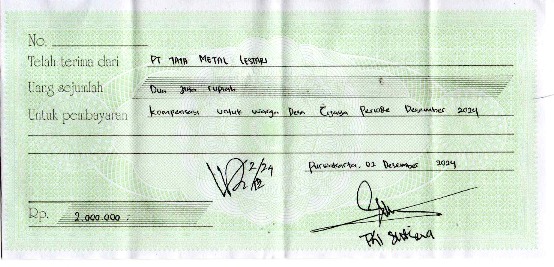 No.
Telah terima dari PT TATA METAL LESTARI
Uang sejumlah Dua juta rupiah
Untuk pembayaran Kompensasi untuk warga Desa Periode Desember 2024
Purwakarta, 02 Desember 2024
2/24
12
Rp. 2.000.000 ;